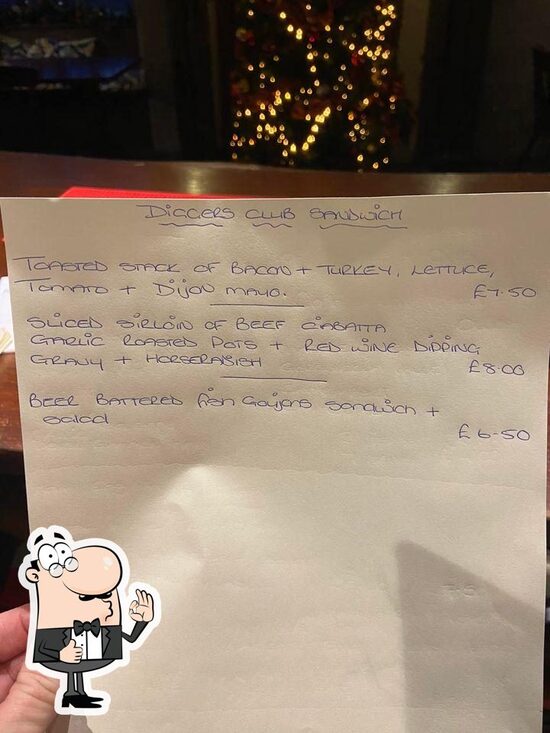 DIGGERS CLUB SANDWICH
TOASTED STACK OF BACON + TURKEY, LETTUCE,
TOMATO + DIJON MAYO. £7.50
SLICED SIRLOIN OF BEEF CIABATTA
GARLIC ROASTED POTS + RED WINE DIPPING
GRAVY + HORSERADISH £8.00
BEER BATTERED fish Goujons sandwich +
salad £6-50